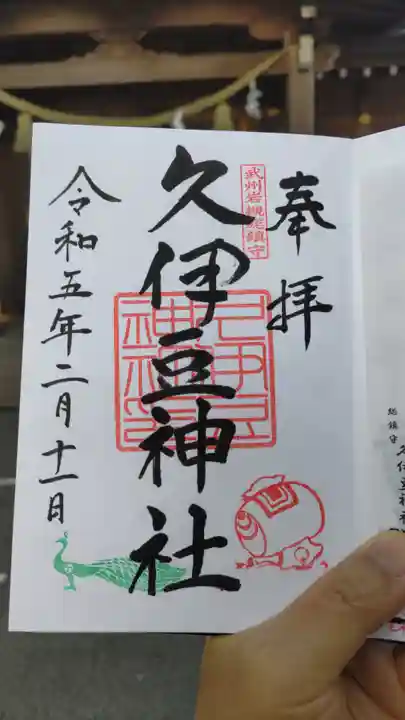 奉拝
武州岩槻総鎮守
久伊豆神社
令和五年二月十一日
総鎮守
久伊豆神社